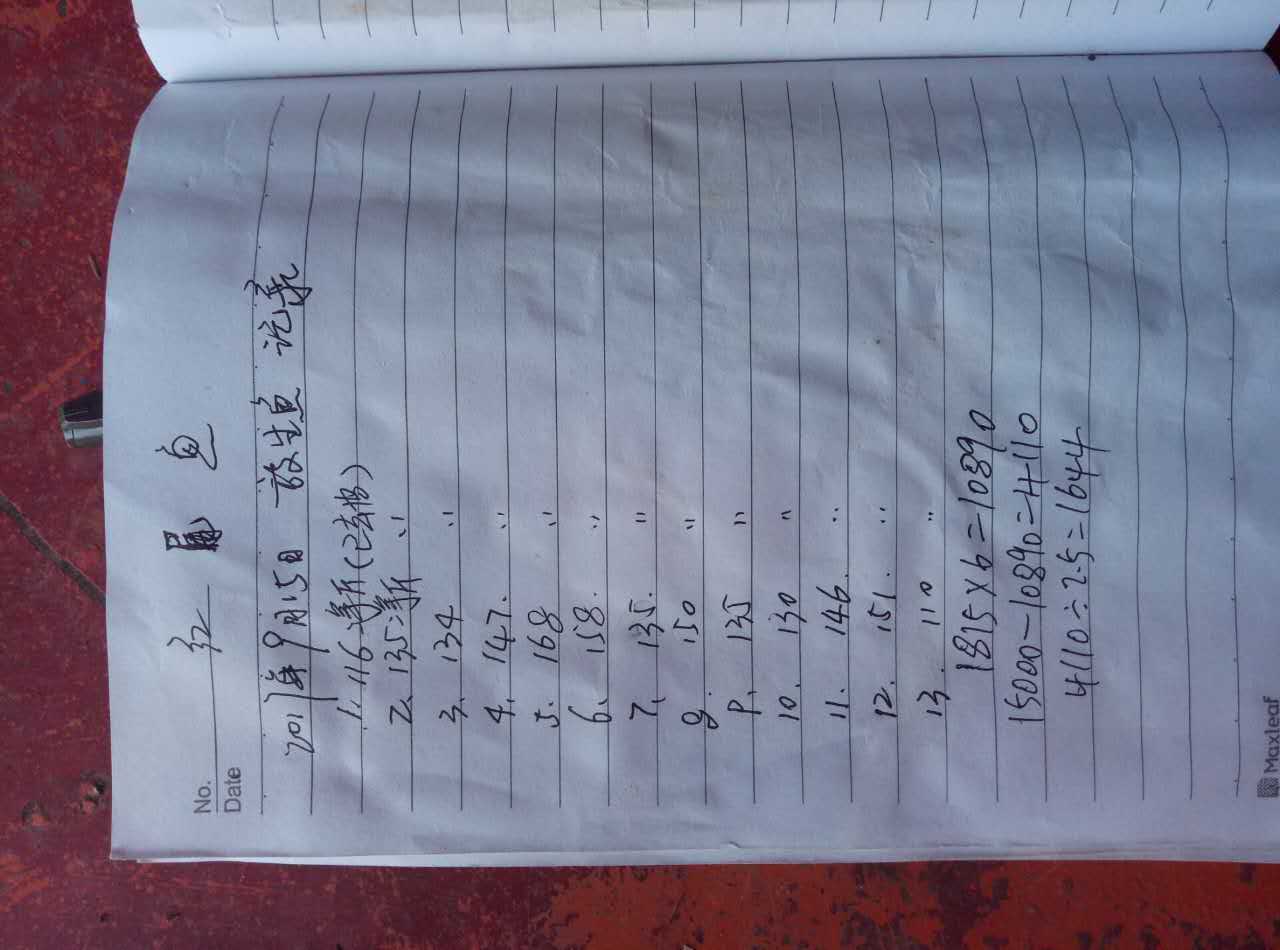 No.
Date
红 尾 鱼
2017年9月15日 放生鱼 记录
1. 116 净斤(已去桶)
2. 135 净斤 〃
3. 134 〃
4. 147. 〃
5. 168 〃
6. 158. 〃
7. 135. 〃
8. 150 〃
9. 135 〃
10. 130 〃
11. 146. 〃
12. 151. 〃
13. 110 〃
1815×6=10890
15000-10890=4110
4110÷2.5=1644
Maxleaf